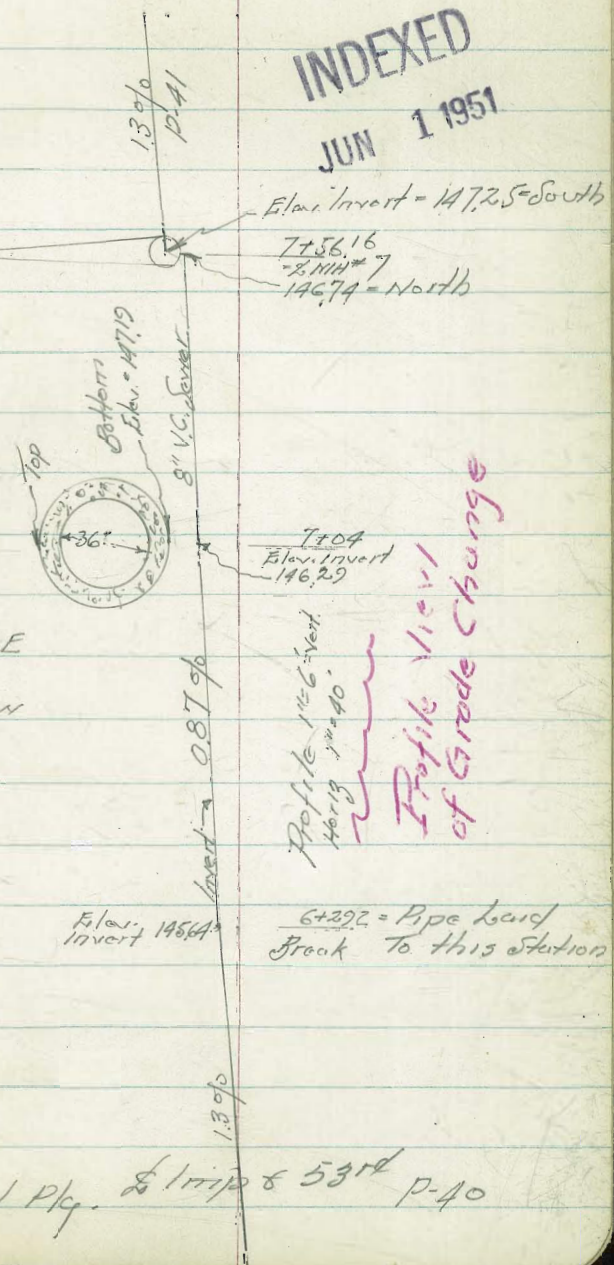 INDEXED
JUN 1 1951
1.3%
P-41
Elev. Invert = 147.25=South
7+56.16
℄ MH#7
146.74 = North
Bottom
Elev. = 147.19
8" V.C. Sewer
Top
36"
7+04
Elev. Invert
146.29
E
N
0.87%
Profile 1"=6' Vert.
Horiz 1"=40'
Profile View
of Grade Change
Invert
Elev.
Invert 145.64
6+29.2 = Pipe Laid
Break To this Station
1.3%
Plg. ℄ Imp & 53rd P-40